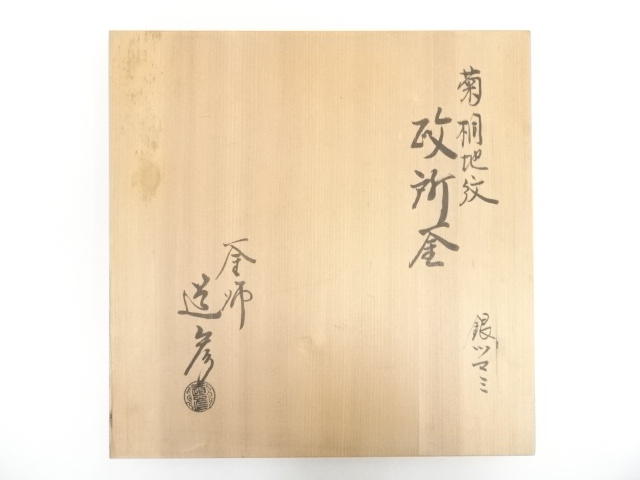 菊桐地紋
政所釜
銀ツマミ
釜師
道彦